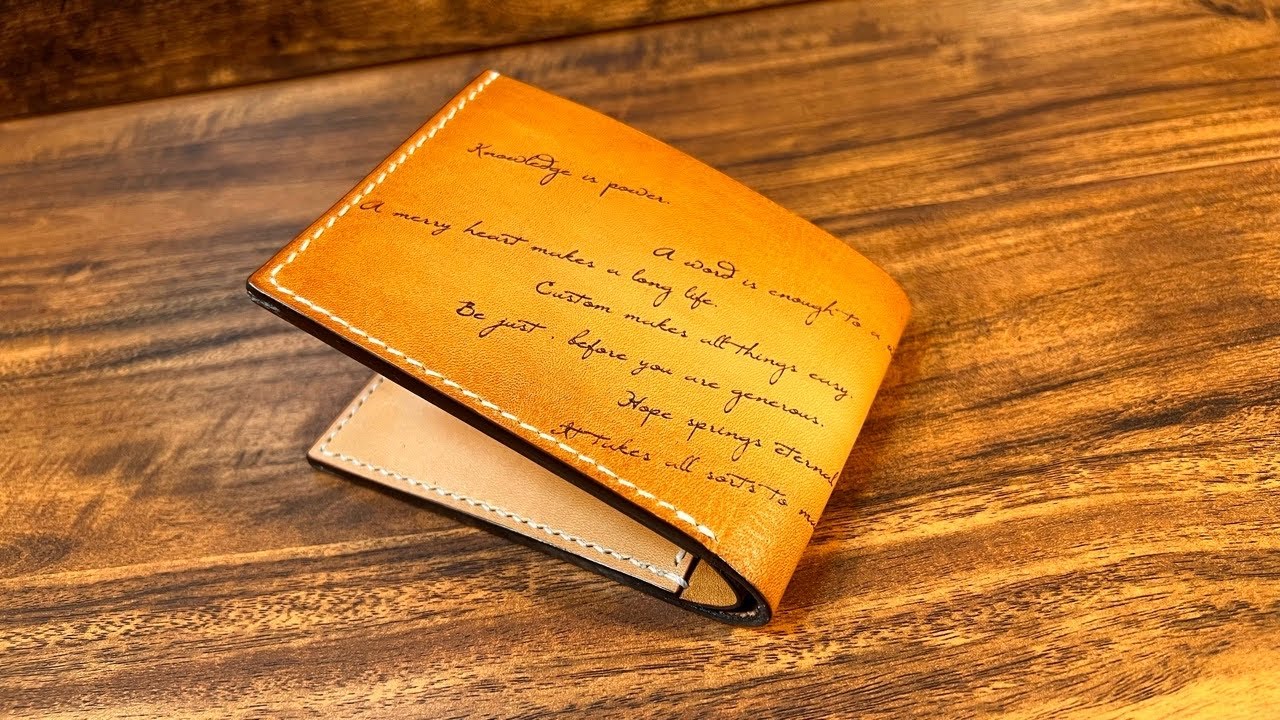 Knowledge is power.
A word is enough to a
A merry heart makes a long life.
Custom makes all things easy.
Be just, before you are generous.
Hope springs eternal
It takes all sorts to